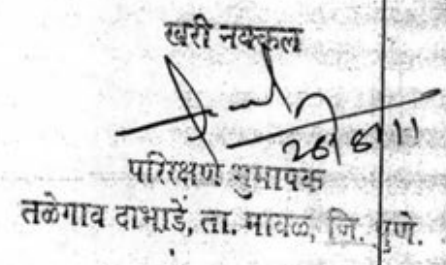 खरी नक्कल
परिरक्षण भुमापक
तळेगाव दाभाडे, ता. मावळ, जि. पुणे.